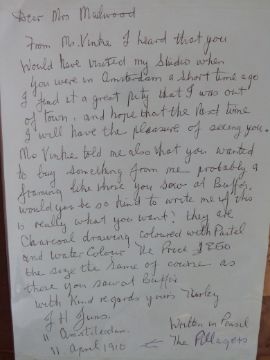 Dear Mrs
From Mr. Vinke I heard that you
would have visited my studio when
you were in Amsterdam a short time ago
I find it a great pity that I was out
of town, and hope that the next time
I will have the pleasure of seeing you.
Mr Vinke told me also that you wanted
to buy something from me probably a
like those you saw at Buffa,
would you be so kind to write me if this
is really what you want? they are
Charcoal drawing coloured with Pastel
and Water Colour The Price
the size the same of course as
those you saw at Buffa
with kind regards yours
Amsterdam
11 April 1910
Written in
The